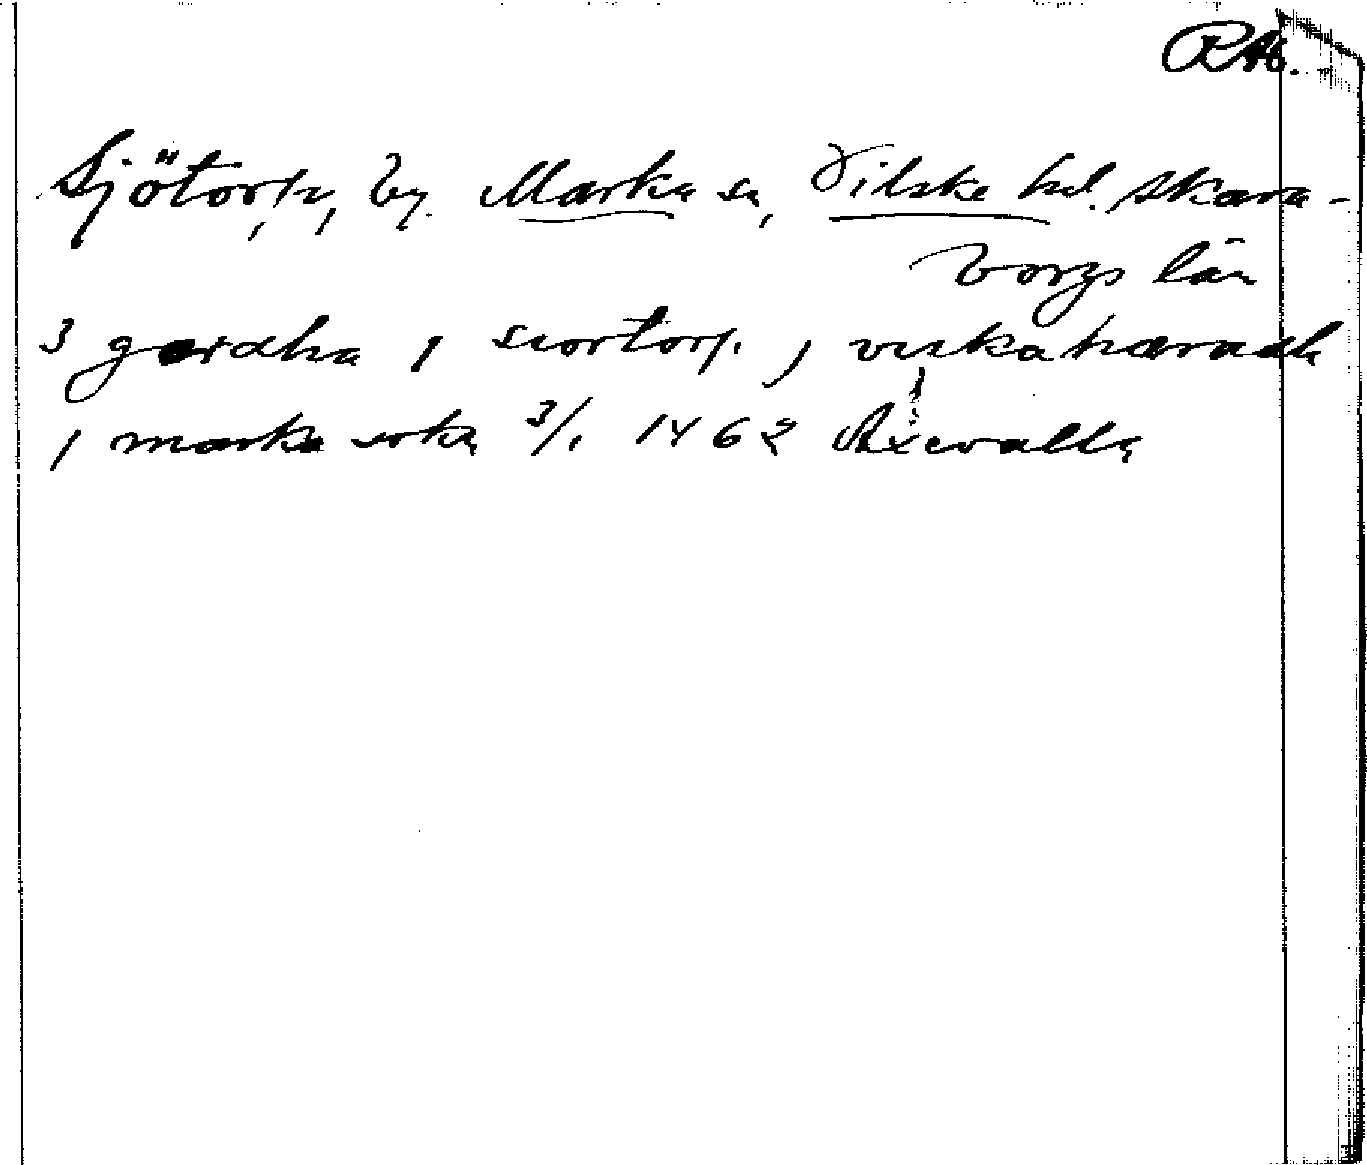 RAb.
Sjötorp, by. Marka sn, Vilske hd. Skara-
borgs län
3 gardha j siortorp. j viskahæradh
j marka sokn 3/1 1462 Axevalla